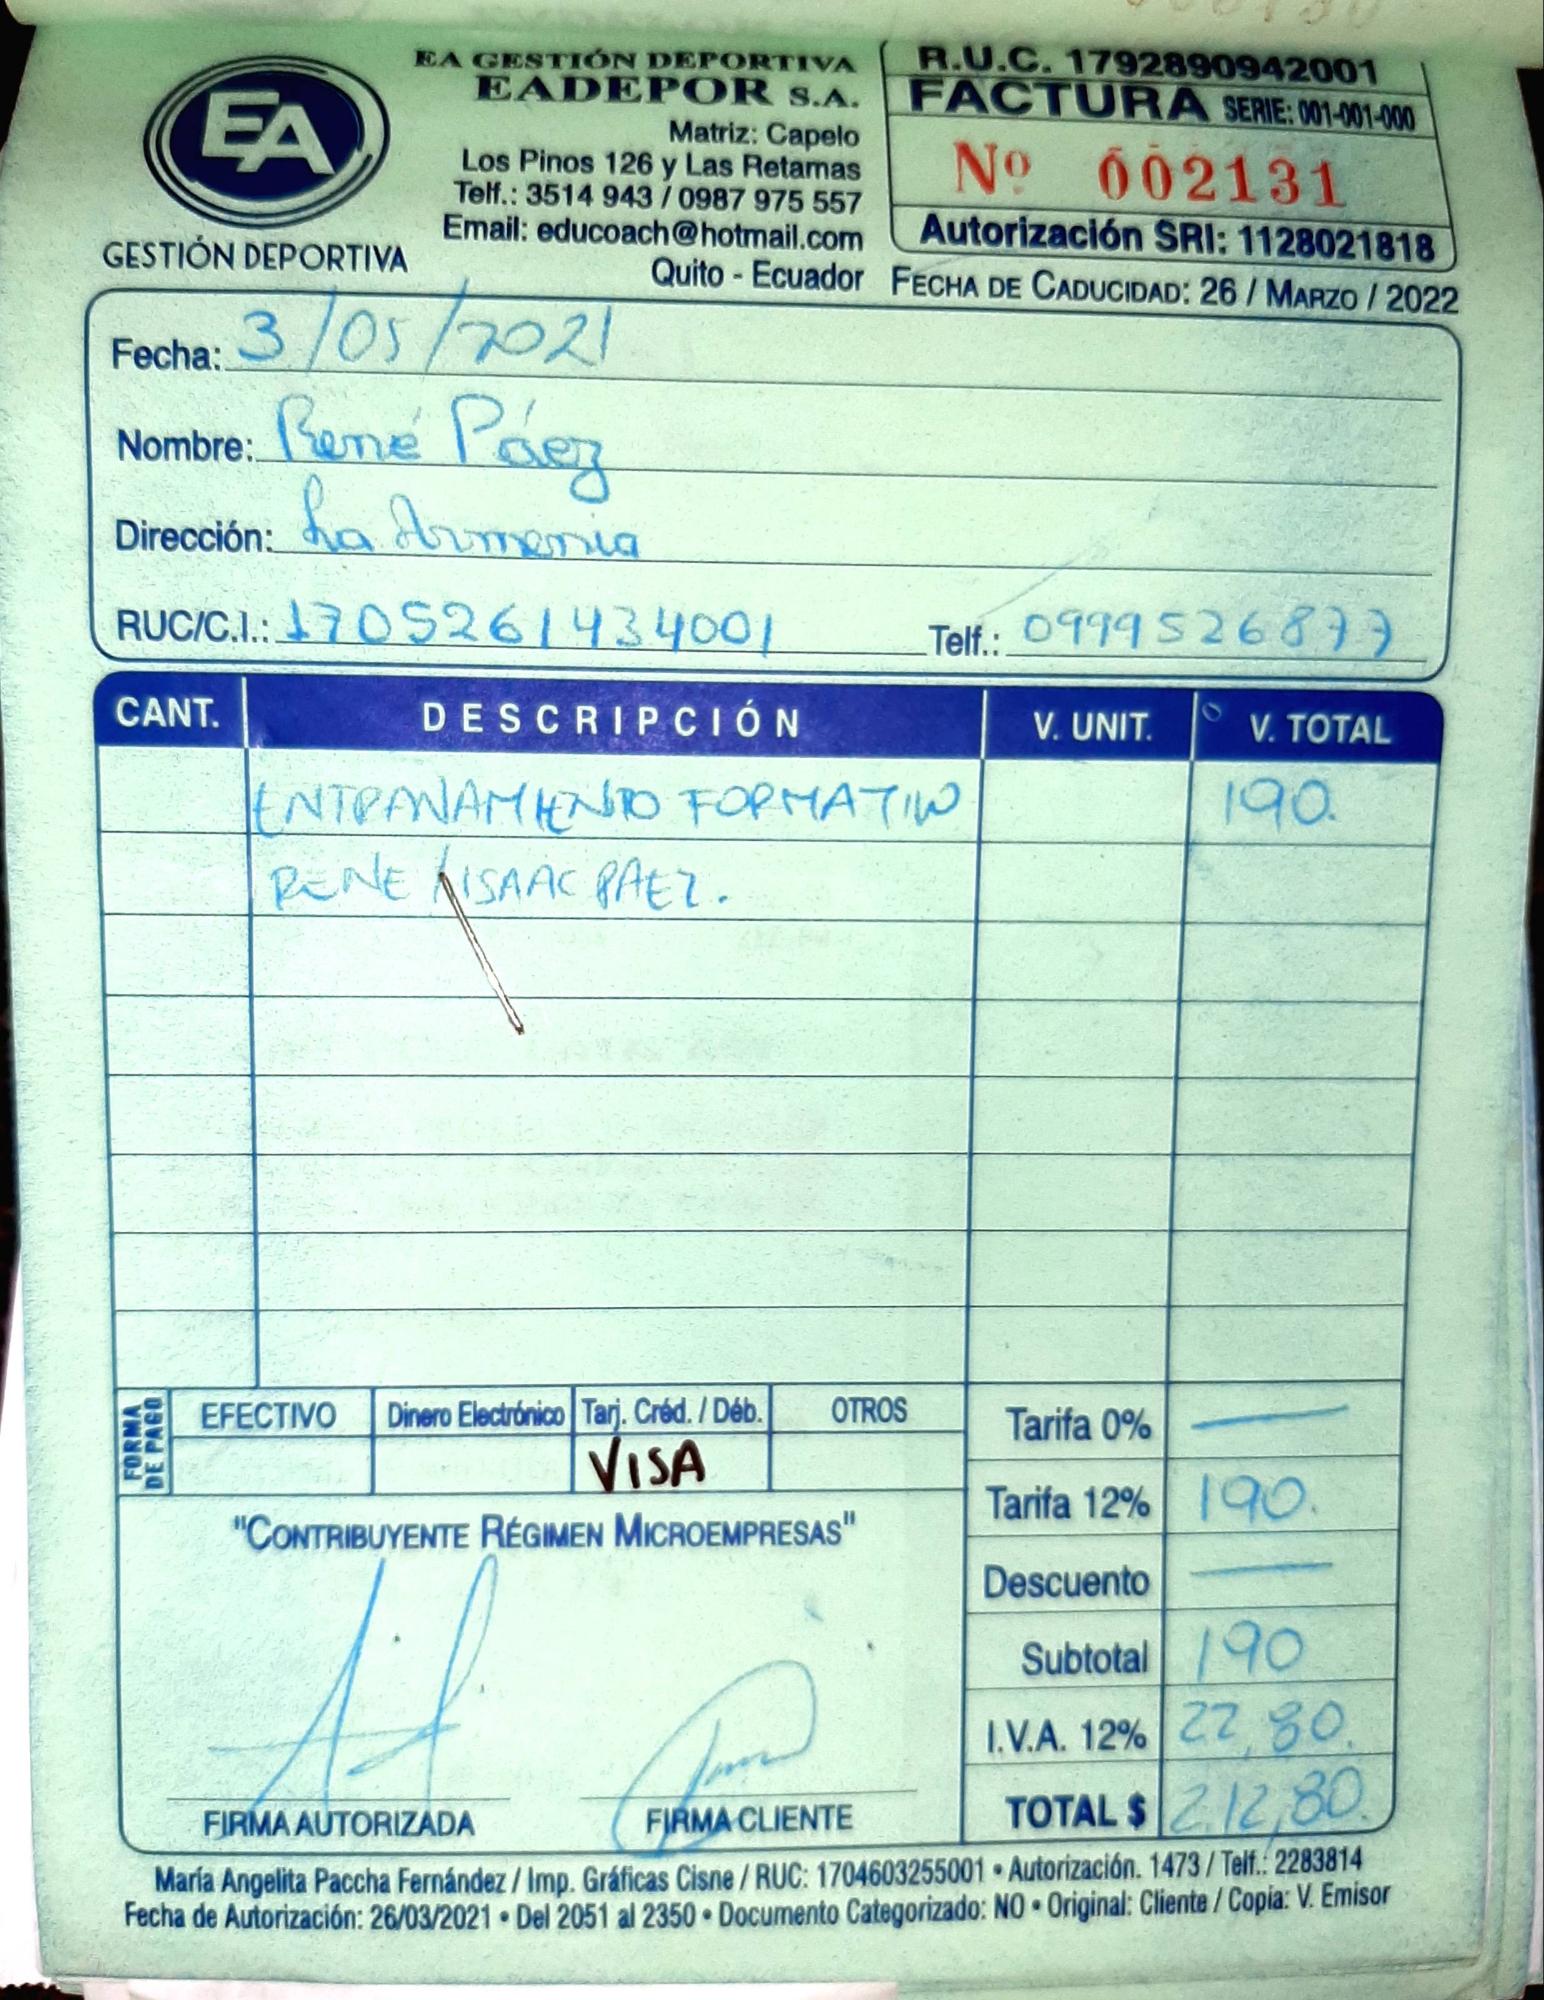 EA
GESTIÓN DEPORTIVA
EA GESTIÓN DEPORTIVA
EADEPOR S.A.
Matriz: Capelo
Los Pinos 126 y Las Retamas
Telf.: 3514 943 / 0987 975 557
Email: educoach@hotmail.com
Quito - Ecuador
R.U.C. 1792890942001
FACTURA SERIE: 001-001-000
Nº 002131
Autorización SRI: 1128021818
FECHA DE CADUCIDAD: 26 / MARZO / 2022
Fecha: 3/05/2021
Nombre: René Páez
Dirección: La Armenia
RUC/C.I.: 1705261434001 Telf.: 0999526877
CANT. DESCRIPCIÓN V. UNIT. V. TOTAL
ENTRENAMIENTO FORMATIVO 190.
RENE / ISAAC PAEZ.
FORMA DE PAGO
EFECTIVO Dinero Electrónico Tarj. Créd. / Déb. OTROS
VISA
Tarifa 0% —
Tarifa 12% 190.
Descuento —
Subtotal 190
I.V.A. 12% 22,80.
TOTAL $ 212,80.
"CONTRIBUYENTE RÉGIMEN MICROEMPRESAS"
FIRMA AUTORIZADA FIRMA CLIENTE
María Angelita Paccha Fernández / Imp. Gráficas Cisne / RUC: 1704603255001 • Autorización. 1473 / Telf.: 2283814
Fecha de Autorización: 26/03/2021 • Del 2051 al 2350 • Documento Categorizado: NO • Original: Cliente / Copia: V. Emisor